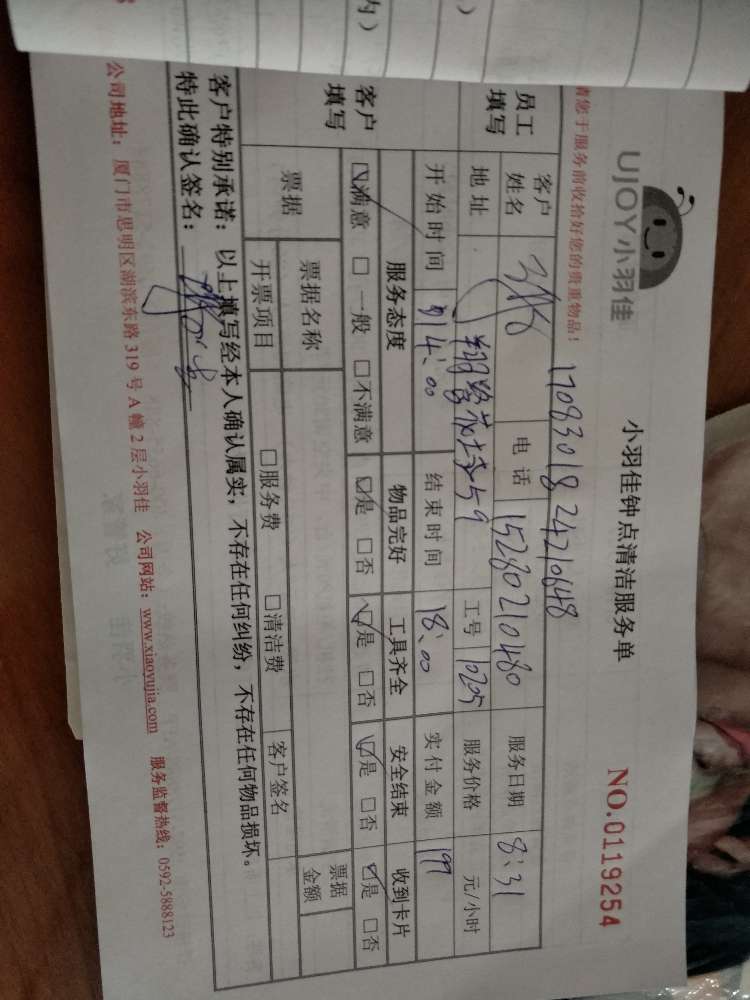 UJOY小羽佳
小羽佳钟点清洁服务单
NO.0119254
请您于服务前收拾好您的贵重物品！
1708301824210648
员工填写
客户姓名
电话 15260210480
服务日期 8:31
地址
59
工号 10205
服务价格 元/小时
开始时间 14:00
结束时间 18:00
实付金额 199
客户填写
服务态度 物品完好 工具齐全 安全结束 收到卡片
☑满意 □一般 □不满意 ☑是 □否 ☑是 □否 ☑是 □否 ☑是 □否
票据
票据名称
票据金额
开票项目 □服务费 □清洁费 客户签名
客户特别承诺：以上填写经本人确认属实，不存在任何纠纷，不存在任何物品损坏。
特此确认签名：
公司地址：厦门市思明区湖滨东路319号A幢2层小羽佳 公司网站：www.xiaoyujia.com 服务监督热线：0592-5888123
内）
）